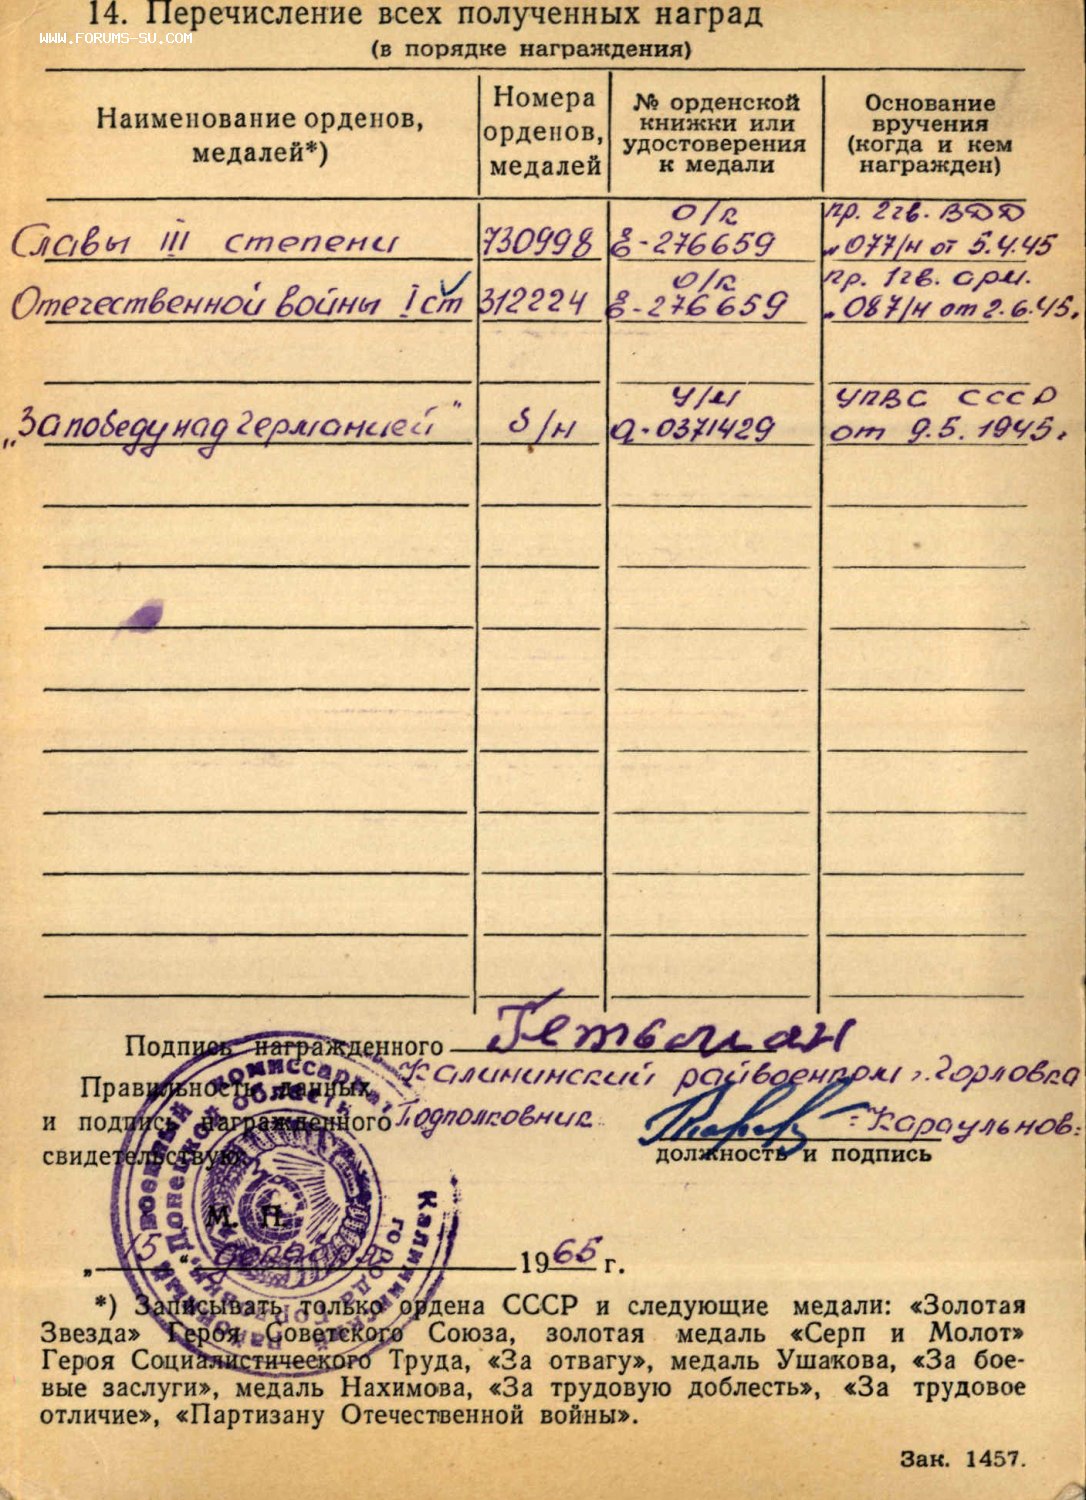 14. Перечисление всех полученных наград
WWW.FORUMS-SU.COM
(в порядке награждения)
Наименование орденов, медалей*)
Номера орденов, медалей
№ орденской книжки или удостоверения к медали
Основание вручения (когда и кем награжден)
Славы III степени 730998 О/к Е-276659 пр. 2 гв. ВДД „077/н от 5.4.45
Отечественной войны I ст 312224 О/к Е-276659 пр. 1 гв. арм. „087/н от 2.6.45.
„За победу над Германией" б/н У/м а-0371429 УПВС СССР от 9.5.1945.
Подпись награжденного Гетьман
Правильность данных Калининский райвоенком г. Горловка
и подпись награжденного Подполковник - Караульнов:
свидетельствую: должность и подпись
М. П.
„15" 1965 г.
Калининский районный военный комиссариат
города Горловки, Донецкой области
*) Записывать только ордена СССР и следующие медали: «Золотая
Звезда» Героя Советского Союза, золотая медаль «Серп и Молот»
Героя Социалистического Труда, «За отвагу», медаль Ушакова, «За бое-
вые заслуги», медаль Нахимова, «За трудовую доблесть», «За трудовое
отличие», «Партизану Отечественной войны».
Зак. 1457.